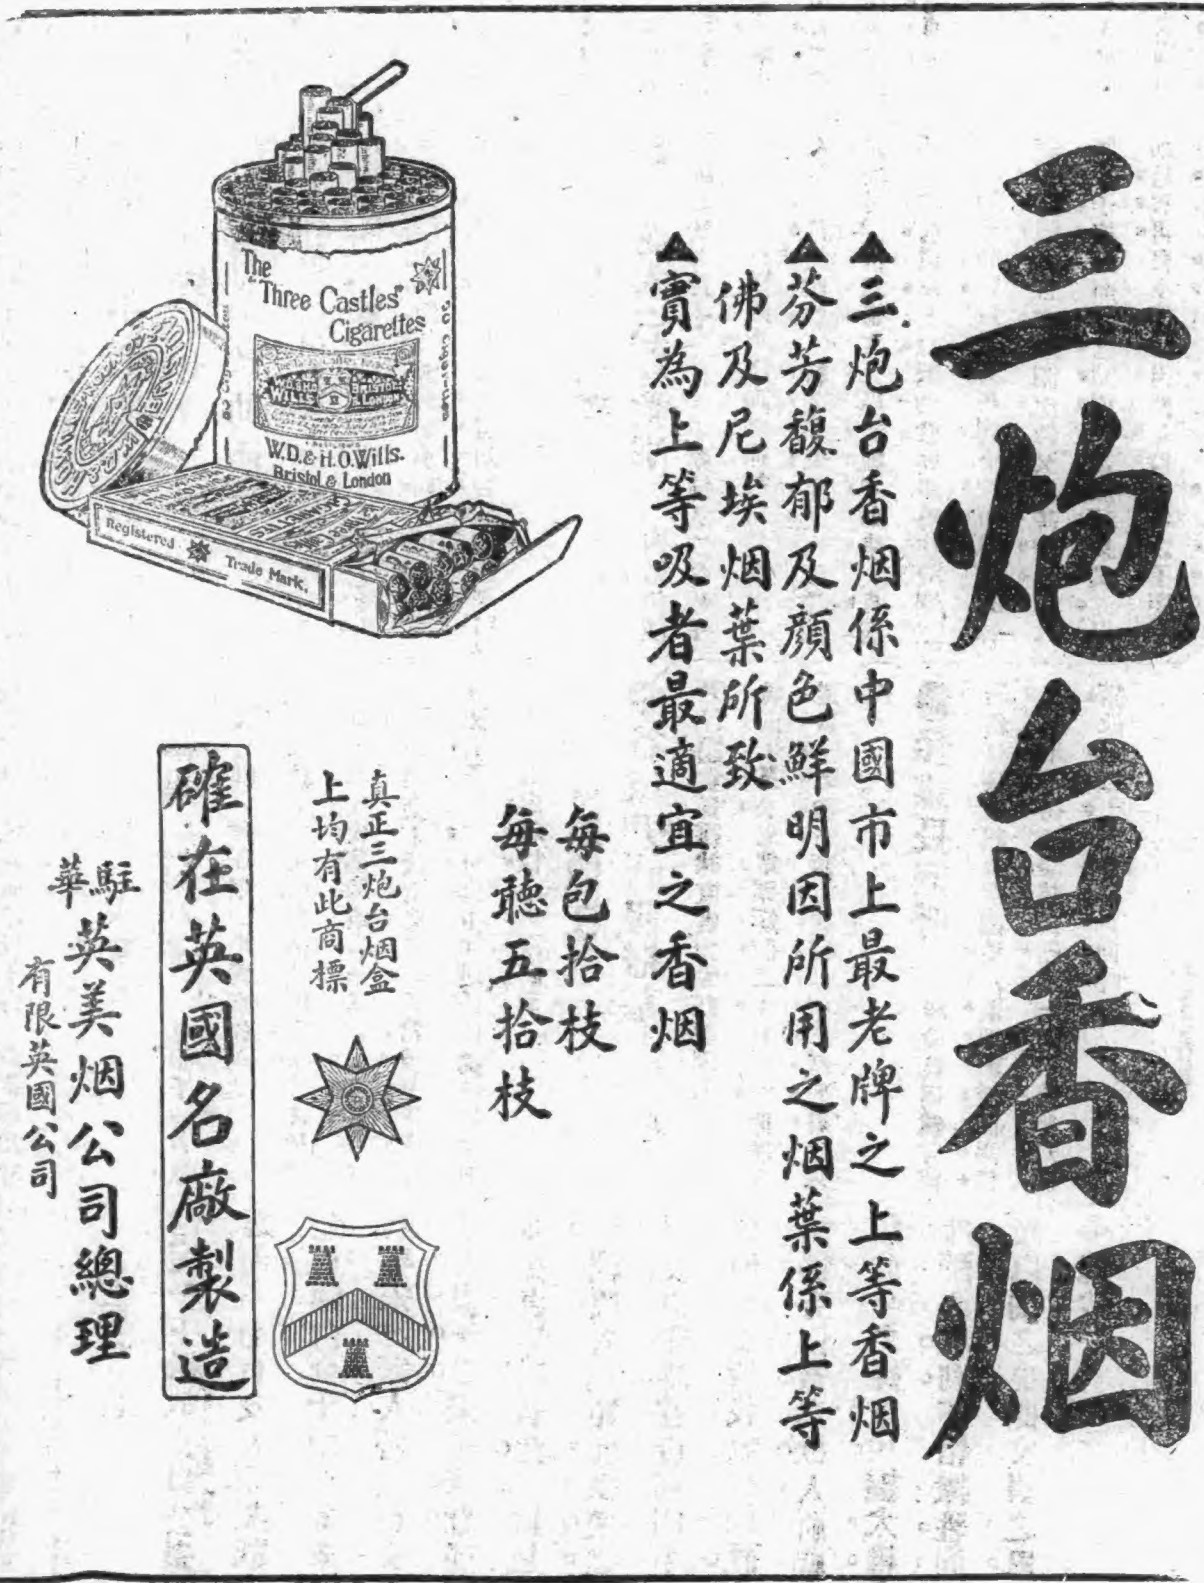 三炮台香烟
▲三炮台香烟係中國市上最老牌之上等香烟
▲芬芳馥郁及顏色鮮明因所用之烟葉係上等
佛及尼埃烟葉所致
▲實為上等吸者最適宜之香烟
每包拾枝
每聽五拾枝
The
"Three Castles"
Cigarettes
W.D.& H.O.Wills.
Bristol & London
Registered Trade Mark.
真正三炮台烟盒
上均有此商標
確在英國名廠製造
駐華英美烟公司總理
有限英國公司